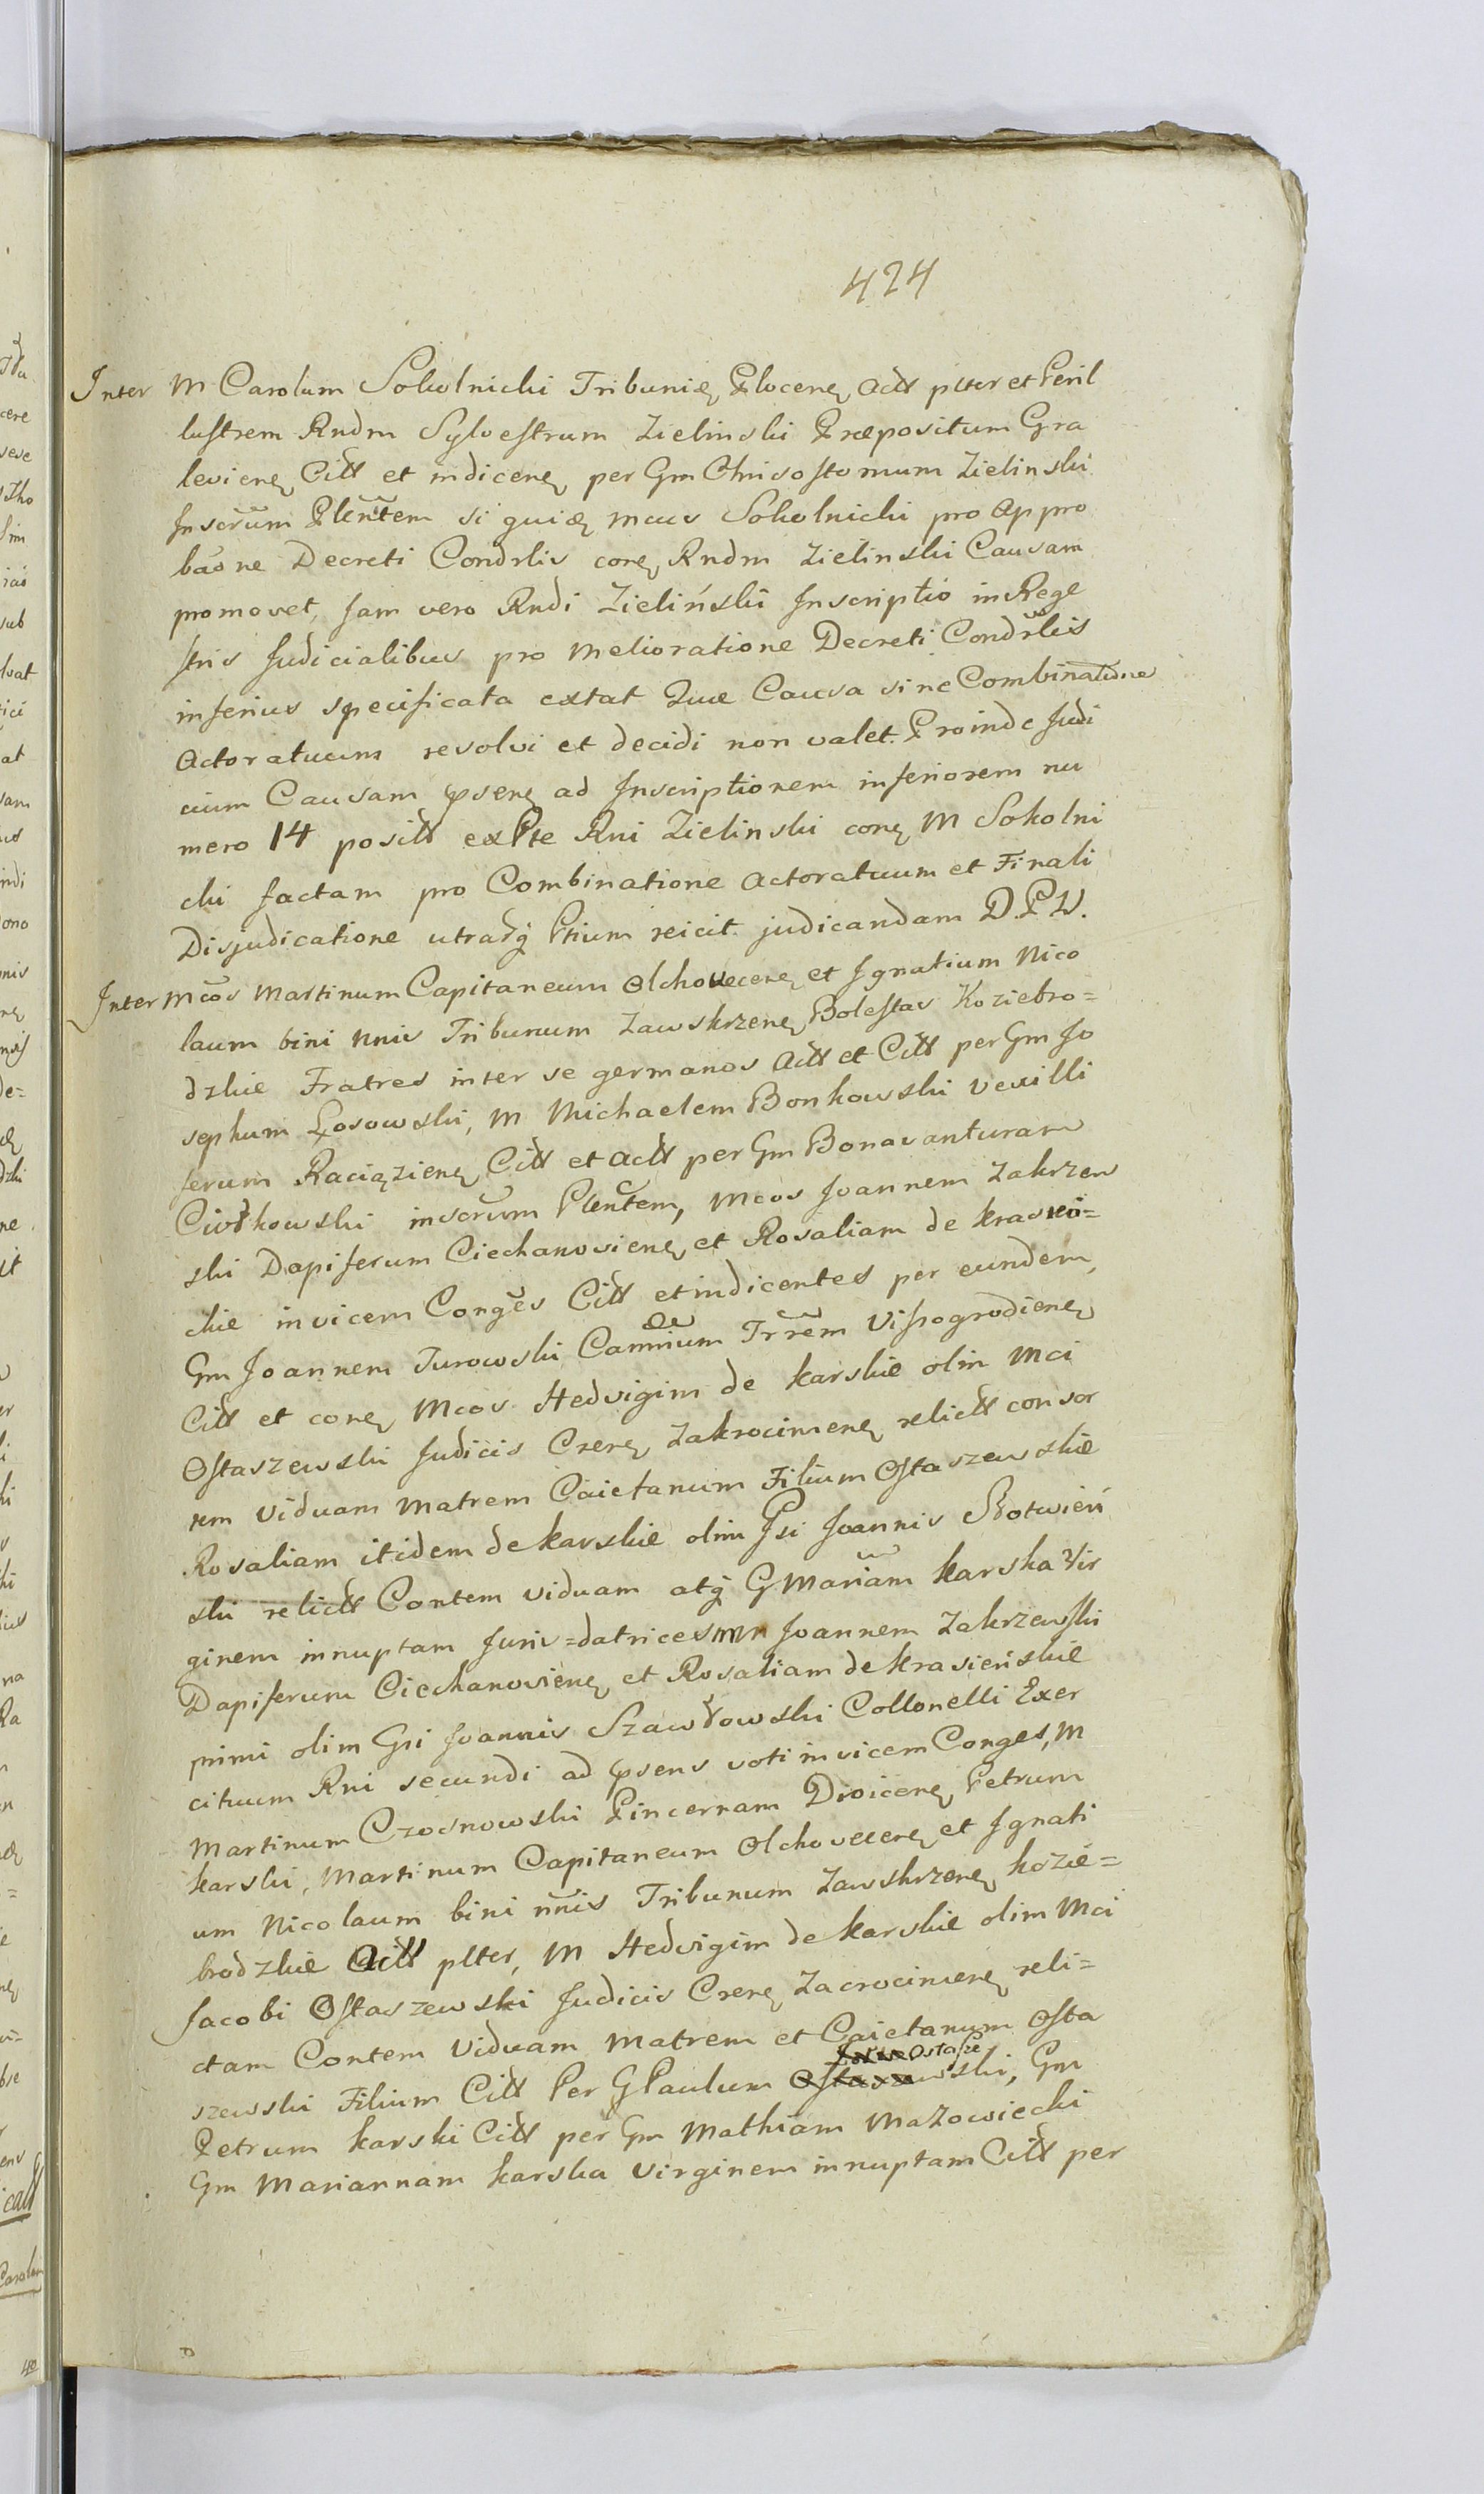 424
Inter M Carolum Sokolnicki Tribunię Plocenę Actt plter et Peril
lustrem Rndm Sylvestrum Zielinski Præpositum Gra
levienę Citt et indicenę per Gm Chrisostomum Zielinski
Inscrum Plentem si quidę mcus Sokolnicki pro Appro
baone Decreti Condrlis conę Rndm Zielinski Causam
promovet, Jam vero Rndi Zieliński Inscriptio in Rege
stris Judicialibus pro melioratione Decreti Condrlis
inferius specificata extat Quæ Causa sine Combinatione
Actoratuum resolvi et decidi non valet. Proinde Judi
cium Causam psenę ad Inscriptionem inferiorem nu
mero 14 positt ex Pte Rni Zielinski conę M Sokolni
cki factam pro Combinatione Actoratuum et Finali
Disjudicatione utrarq Ptium reicit judicandam D.P.W.
Inter Mcos Martinum Capitaneum Olchovecenę et Ignatium Nico
laum bini nnis Tribunum Zawskrzenę Bolestas Koziebro=
dzkie Fratres inter se germanos Actt et Citt per Gm Jo
sephum Łosowski, M Michaelem Bonkowski Vexilli
ferum Raciązienę Citt et Actt per Gm Bonavanturam
Ciołkowski inscrum Plentem, Mcos Joannem Zakrzew
ski Dapiferum Ciechanovienę et Rosaliam de Krasień=
skie invicem Conges Citt et indicentes per eundem,
Gm Joannem Turowski Camrium Trrem Vissogrodienę
Citt et conę Mcos Hedvigim de Karskie olim Mci
Ostaszewski Judicis Crenę Zakrocimenę relictt consor
tem Viduam Matrem Caietanum Filium Ostaszewskie
Rosaliam itidem de Karskie olim Gsi Joannis Słotwień
ski relictt Contem viduam atq G Mariam Karska Vir
ginem innuptam Juris=datrices Mm Joannem Zakrzewski
Dapiferum Ciechanovienę et Rosaliam de Krasieńskie
primi olim Gsi Joannis Szawłowski Collonelli Exer
cituum Rni secundi ad psens voti invicem Conges, M
Martinum Czosnowski Pincernam Droicenę Petrum
Karski, Martinum Capitaneum Olchovecenę et Ignati
um Nicolaum bini nnis Tribunum Zawskrzenę Kozie=
brodzkie Actt plter, M Hedvigim de Karskie olim Mci
Jacobi Ostaszewski Judicis Crenę Zacrocimenę reli=
ctam Contem Viduam Matrem et Caietanum Osta
szewski Filium Citt Per G Paulum Ostasze wski, Gm
Petrum Karski Citt per Gm Mathiam Mazowiecki
Gm Mariannam Karska Virginem innuptam Citt per